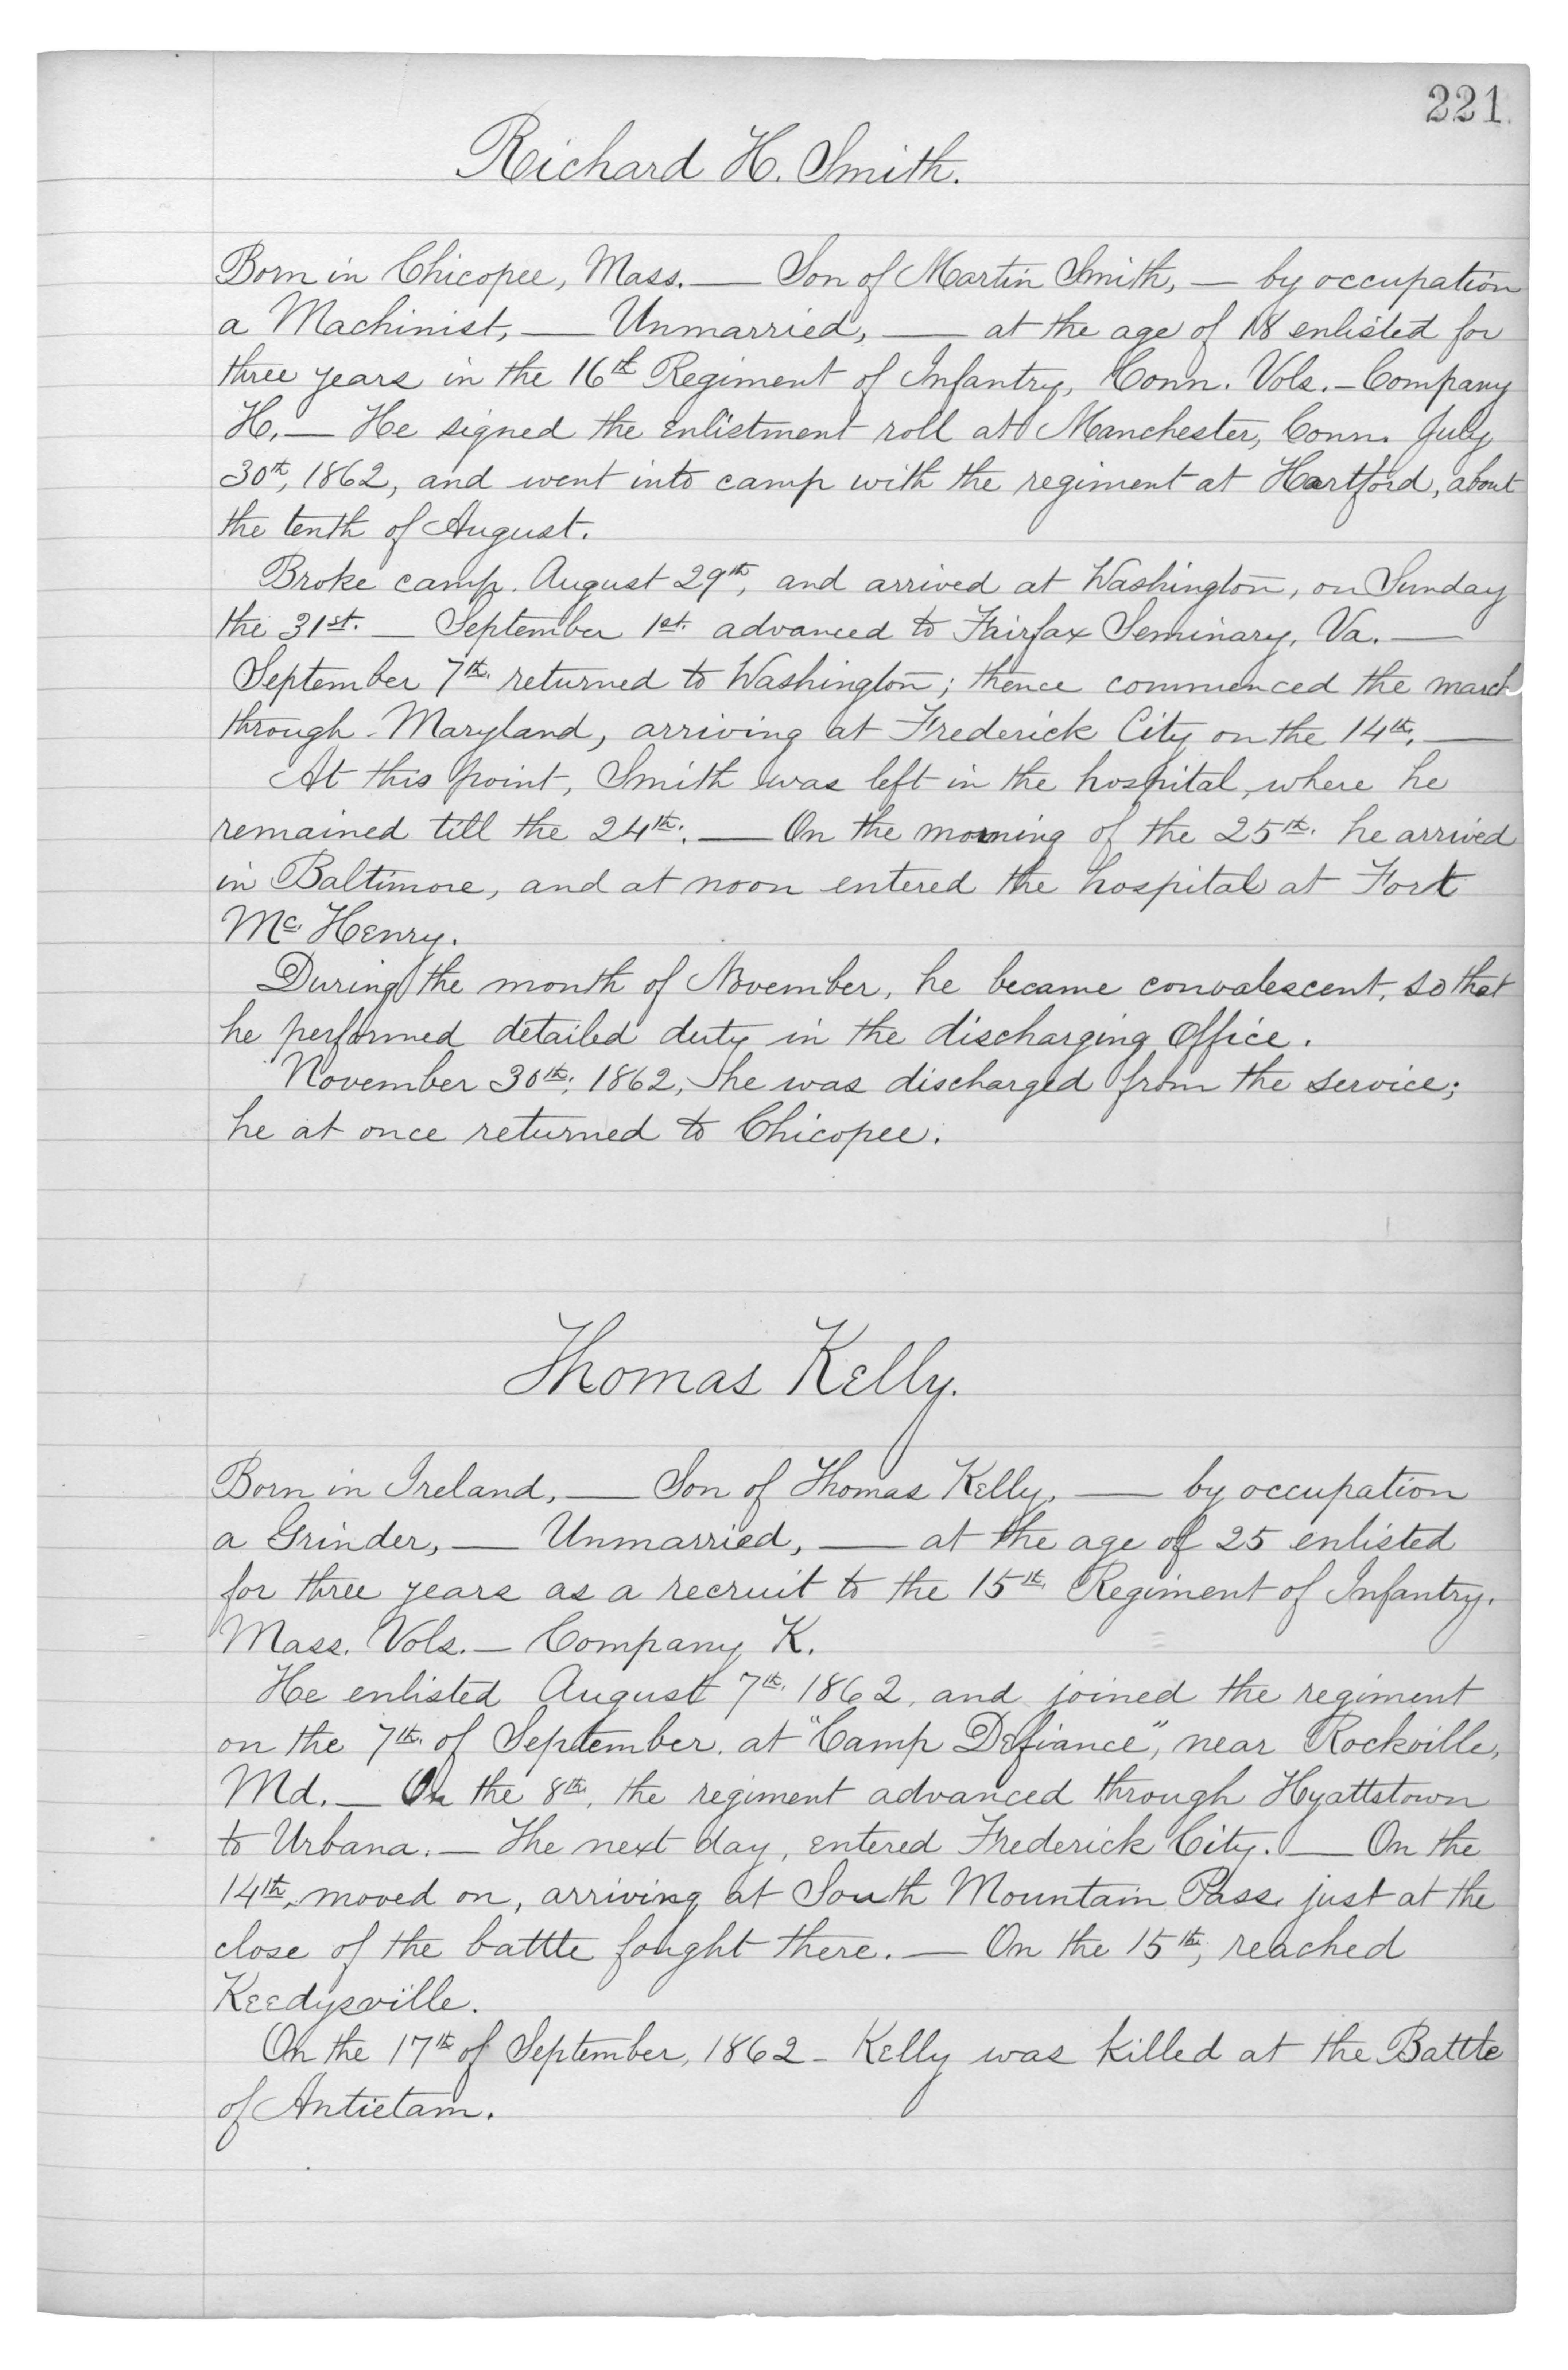 221
Richard H. Smith.
Born in Chicopee, Mass. — Son of Martin Smith, — by occupation
a Machinist, — Unmarried, — at the age of 18 enlisted for
three years in the 16th Regiment of Infantry, Conn. Vols. — Company
H. — He signed the enlistment roll at Manchester, Conn. July
30th, 1862, and went into camp with the regiment at Hartford, about
the tenth of August.
Broke camp August 29th, and arrived at Washington, on Sunday
the 31st. — September 1st. advanced to Fairfax Seminary, Va. —
September 7th. returned to Washington; thence commenced the march
through Maryland, arriving at Frederick City on the 14th. —
At this point, Smith was left in the hospital, where he
remained till the 24th. — On the morning of the 25th. he arrived
in Baltimore, and at noon entered the hospital at Fort
Mc Henry.
During the month of November, he became convalescent, so that
he performed detailed duty in the discharging office.
November 30th, 1862, he was discharged from the service;
he at once returned to Chicopee.
Thomas Kelly.
Born in Ireland, — Son of Thomas Kelly, — by occupation
a Grinder, — Unmarried, — at the age of 25 enlisted
for three years as a recruit to the 15th. Regiment of Infantry.
Mass. Vols. — Company K.
He enlisted August 7th. 1862, and joined the regiment
on the 7th. of September, at "Camp Defiance", near Rockville,
Md. — On the 8th, the regiment advanced through Hyattstown
to Urbana. — The next day, entered Frederick City. — On the
14th, moved on, arriving at South Mountain Pass just at the
close of the battle fought there. — On the 15th, reached
Keedysville.
On the 17th of September, 1862 — Kelly was killed at the Battle
of Antietam.